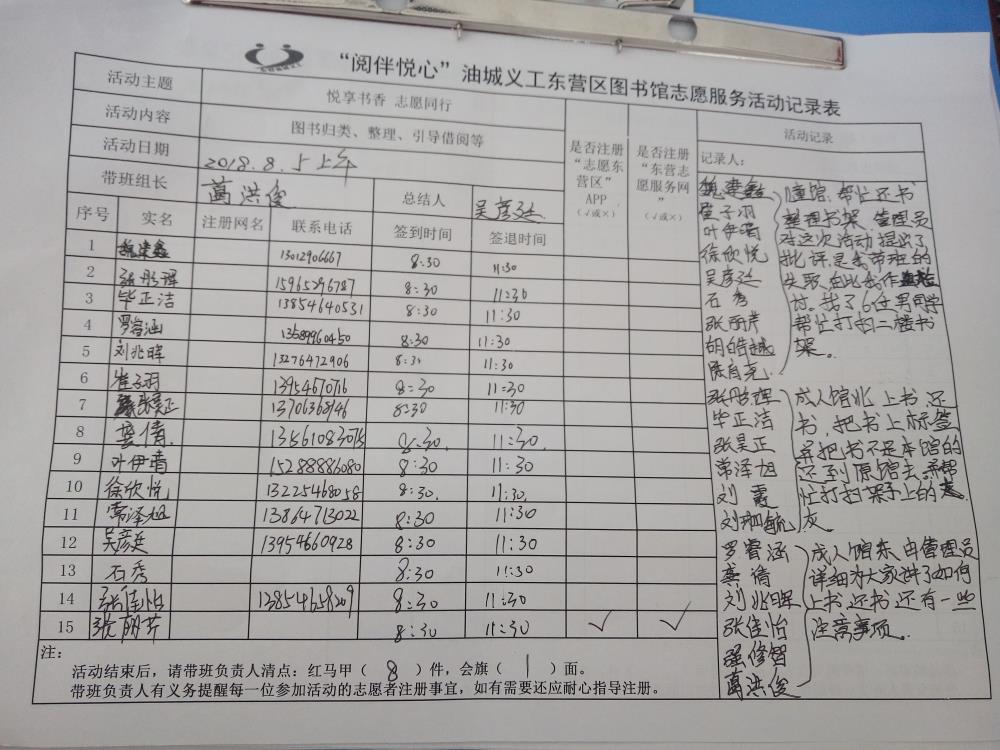 “阅伴悦心”油城义工东营区图书馆志愿服务活动记录表
活动主题 悦享书香 志愿同行
活动内容 图书归类、整理、引导借阅等
活动日期 2018.8.5上午
带班组长 葛洪俊 总结人 吴彦廷
是否注册“志愿东营区”APP（√或×）
是否注册“东营志愿服务网”（√或×）
活动记录
记录人：
序号 实名 注册网名 联系电话 签到时间 签退时间
1 魏楚鑫 13012906667 8:30 11:30
2 张彤理 15965296787 8:30 11:30
3 毕正洁 13854640531 8:30 11:30
4 罗睿涵 13589960450 8:30 11:30
5 刘兆晖 13276472906 8:30 11:30
6 崔子羽 1395467076 8:30 11:30
7 张昊正 13706368146 8:30 11:30
8 龚倩 13561083075 8:30 11:30
9 叶伊晴 15288886080 8:30 11:30
10 徐欣悦 13225468058 8:30 11:30
11 常泽旭 13864713022 8:30 11:30
12 吴彦廷 13954660928 8:30 11:30
13 石秀 8:30 11:30
14 张佳怡 13854658209 8:30 11:30
15 张丽芹 8:30 11:30 √ √
魏楚鑫
崔子羽
叶伊晴
徐欣悦
吴彦廷
石秀
张丽芹
胡皓越
儿童馆、帮忙还书
整理书架，管理员
对这次活动提出了
批评是我带班的
失职，由此我作检
讨。找了6位男同学
帮忙打扫二楼书
架。
张彤理
毕正洁
张昊正
常泽旭
刘霞
成人馆北 上书，还
书，把书上标签
并把书不是本馆的
还到原馆去，并帮
忙打扫架子上的
灰
罗睿涵
龚倩
刘兆晖
张佳怡
强修智
葛洪俊
成人馆东 由管理员
详细为大家讲了如何
上书，还书还有一些
注意事项。
注：
活动结束后，请带班负责人清点：红马甲（8）件，会旗（1）面。
带班负责人有义务提醒每一位参加活动的志愿者注册事宜，如有需要还应耐心指导注册。